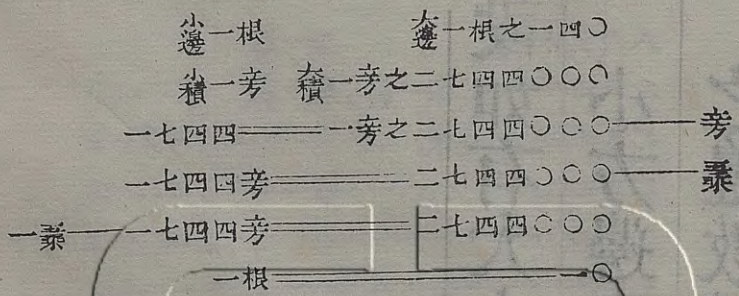 小邊一根 大邊一根之一四〇
小積一立方 大積一立方之二七四四〇〇〇
一七四四 一立方之二七四四〇〇〇 立方
一七四四立方 二七四四〇〇〇
一 一七四四立方 二七四四〇〇〇
一根 一〇